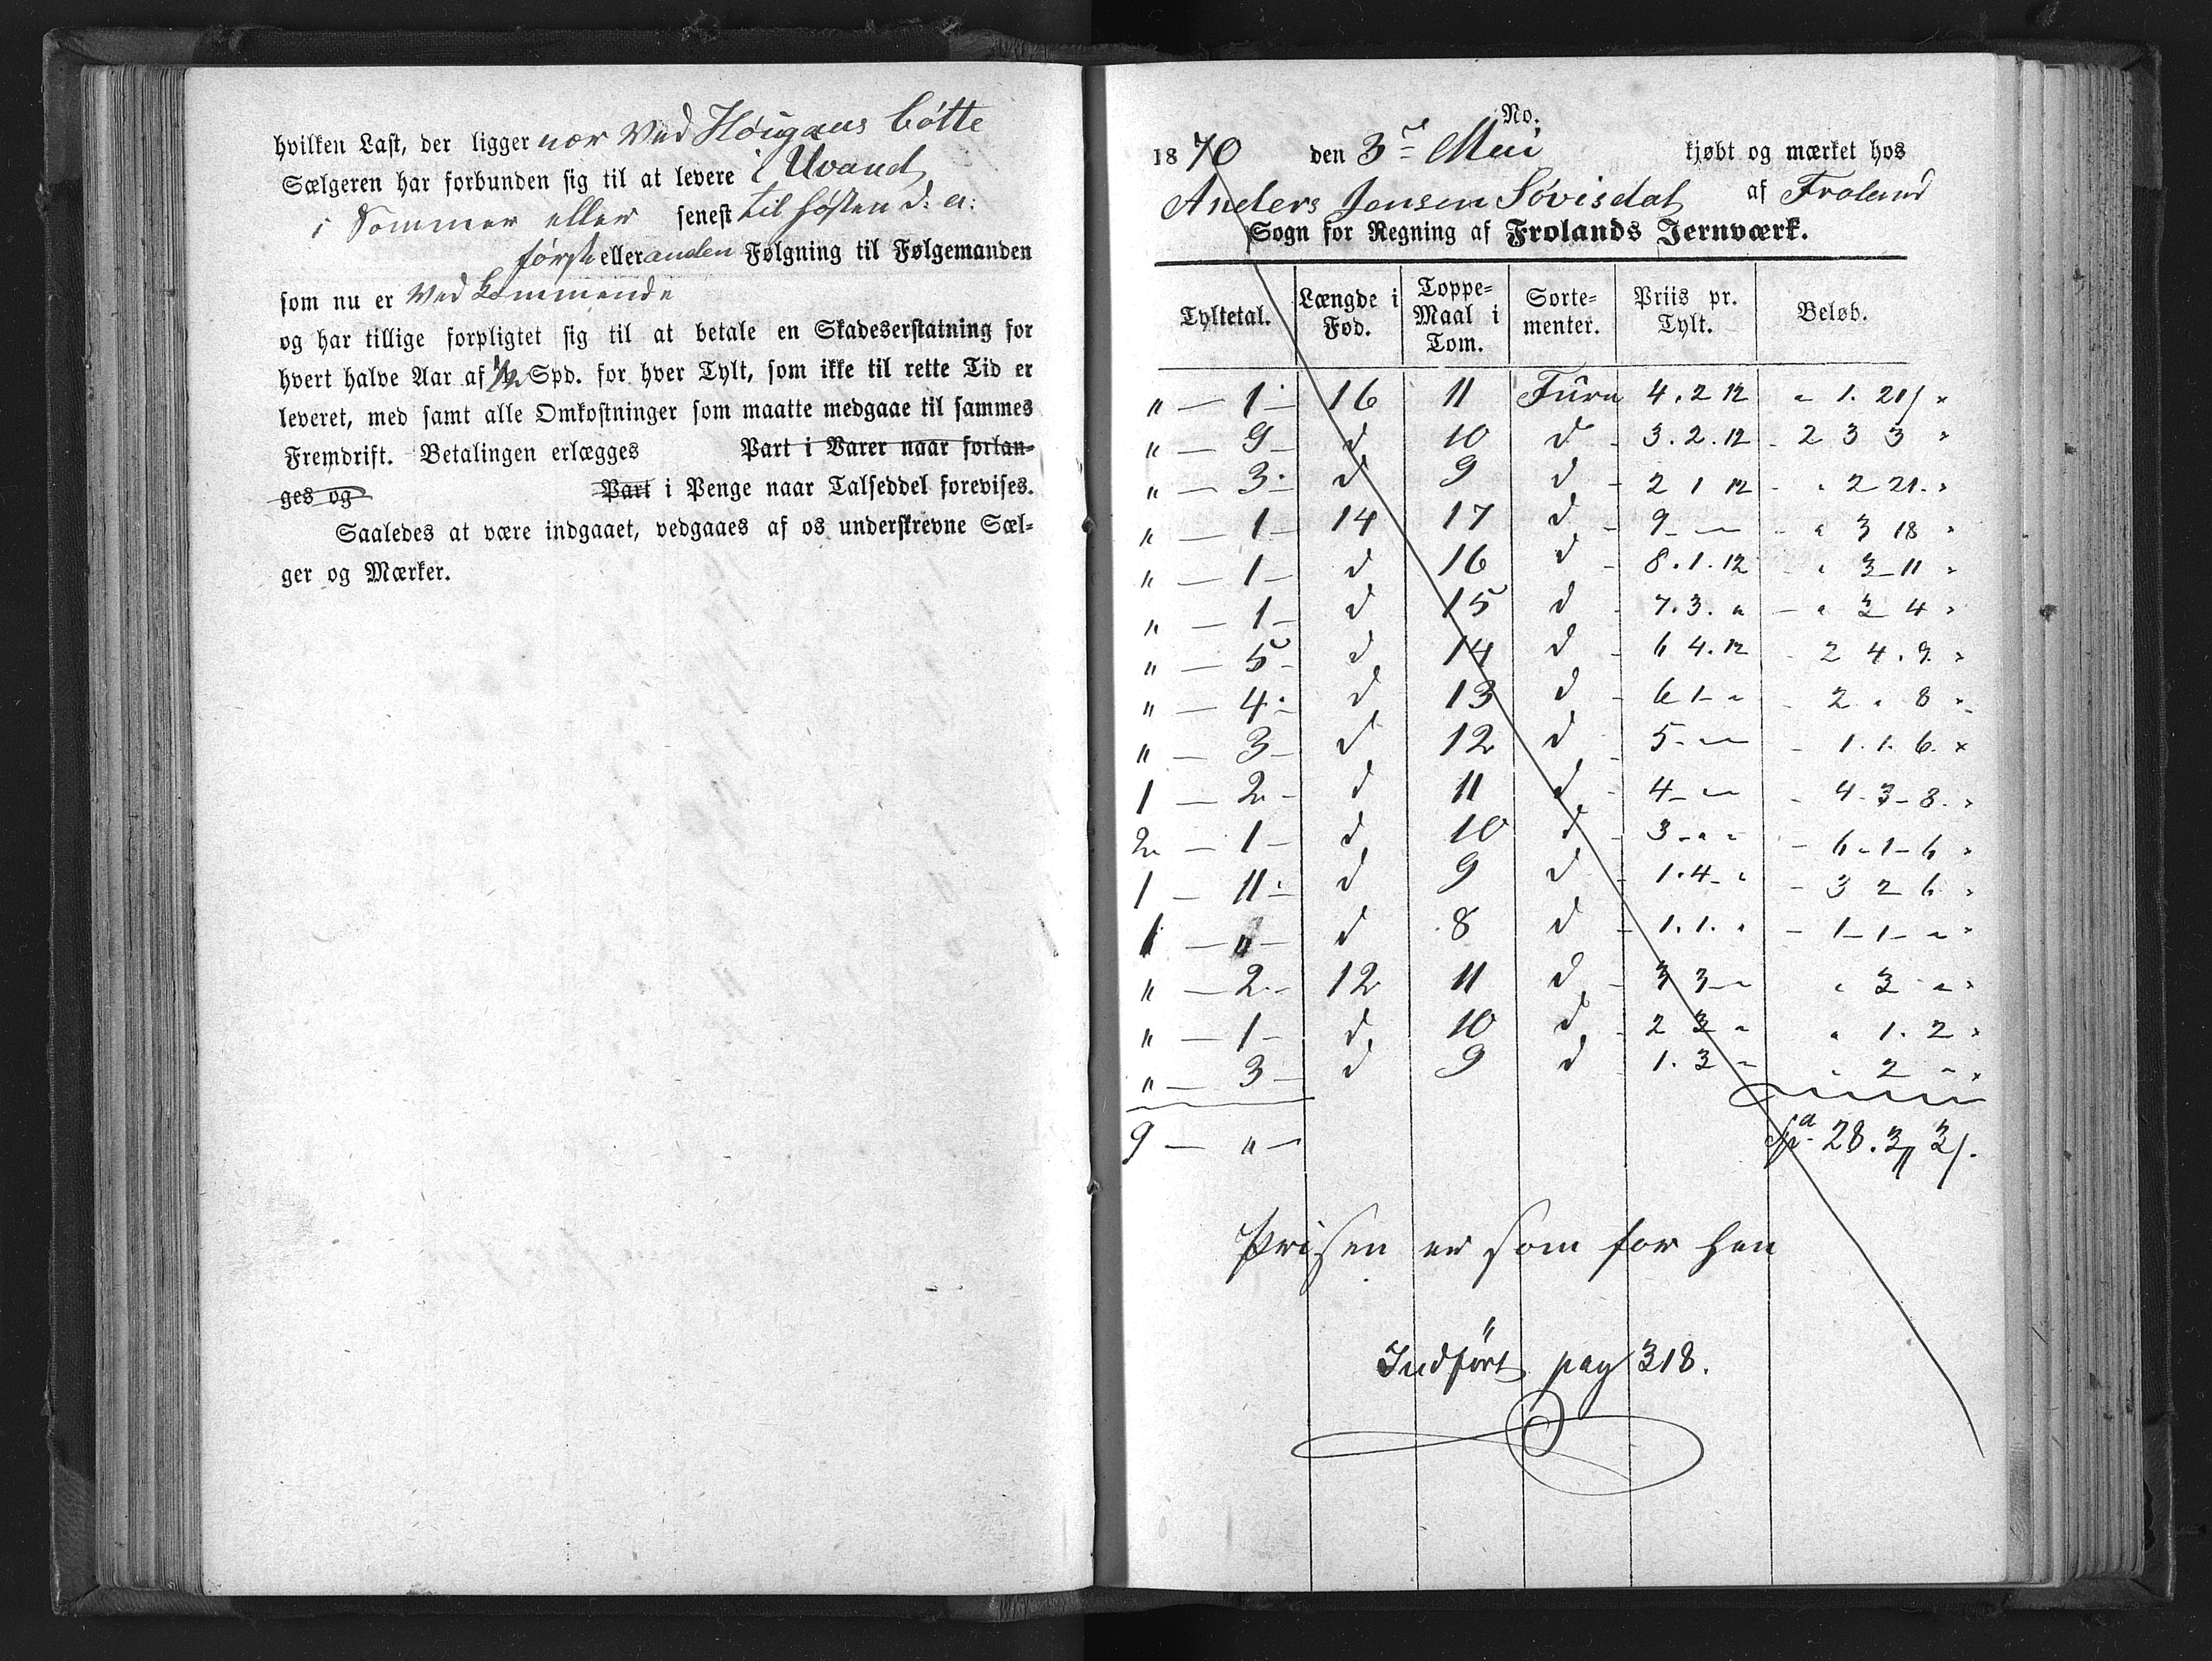 hvilken Last, der ligger nær Ved Höigaas bötte
Sælgeren har forbunden sig til at levere i Uvand
i Sommer eller senest til Høsten d: a:
först eller anden Følgning til Følgemanden
som nu er Ved kommende
og har tillige forpligtet sig til at betale en Skadeserstatning for
hvert halve Aar af 1/2 Spd. for hver Tylt, som ikke til rette Tid er
leveret, med samt alle Omkostninger som maatte medgaae til sammes
Fremdrift. Betalingen erlægges Part i Varer naar forlan-
ges og Part i Penge naar Talseddel forevises.
Saaledes at være indgaaet, vedgaaes af os underskrevne Sæl-
ger og Mærker.
No.
1870 den 3 Mai kjøbt og mærket hos
Anders Jensen Lövisdal af Froland
Sogn for Regning af Frolands Jernværk.
Tyltetal. Længde i Fod. Toppe-Maal i Tom. Sorte-menter. Priis pr. Tylt. Beløb.
" — 1 16 11 Furu 4. 2 12 " 1. 21 "
" — 9 d 10 d 3. 2. 12 2 3 3 "
" — 3 d 9 d 2 1 12 " 2 21 "
" — 1 14 17 d 9 " " " 3 18 "
" — 1 d 16 d 8. 1. 12 " 3 11 "
" — 1 d 15 d 7. 3. " " 3 4 "
" — 5 d 14 d 6 4. 12 2 4. 9. "
" — 4 d 13 d 6 1 " 2 " 8 "
" — 3 d 12 d 5 " " 1. 1. 6. "
1 — 2 d 11 d 4 " " 4. 3. 8. "
2 — 1 d 10 d 3 " " 6 1 6 "
1 — 11 d 9 d 1. 4 " 3 2 6 "
1 — " d 8 d 1. 1. " 1 1 " "
" — 2 12 11 d 3 3 " " 3 " "
" — 1 d 10 d 2 3 " " 1. 2 "
" — 3 d 9 d 1. 3 " " 2 " "
9 — " Spd. 28. 3 3
Prisen er som for hen
Indført pag 318.